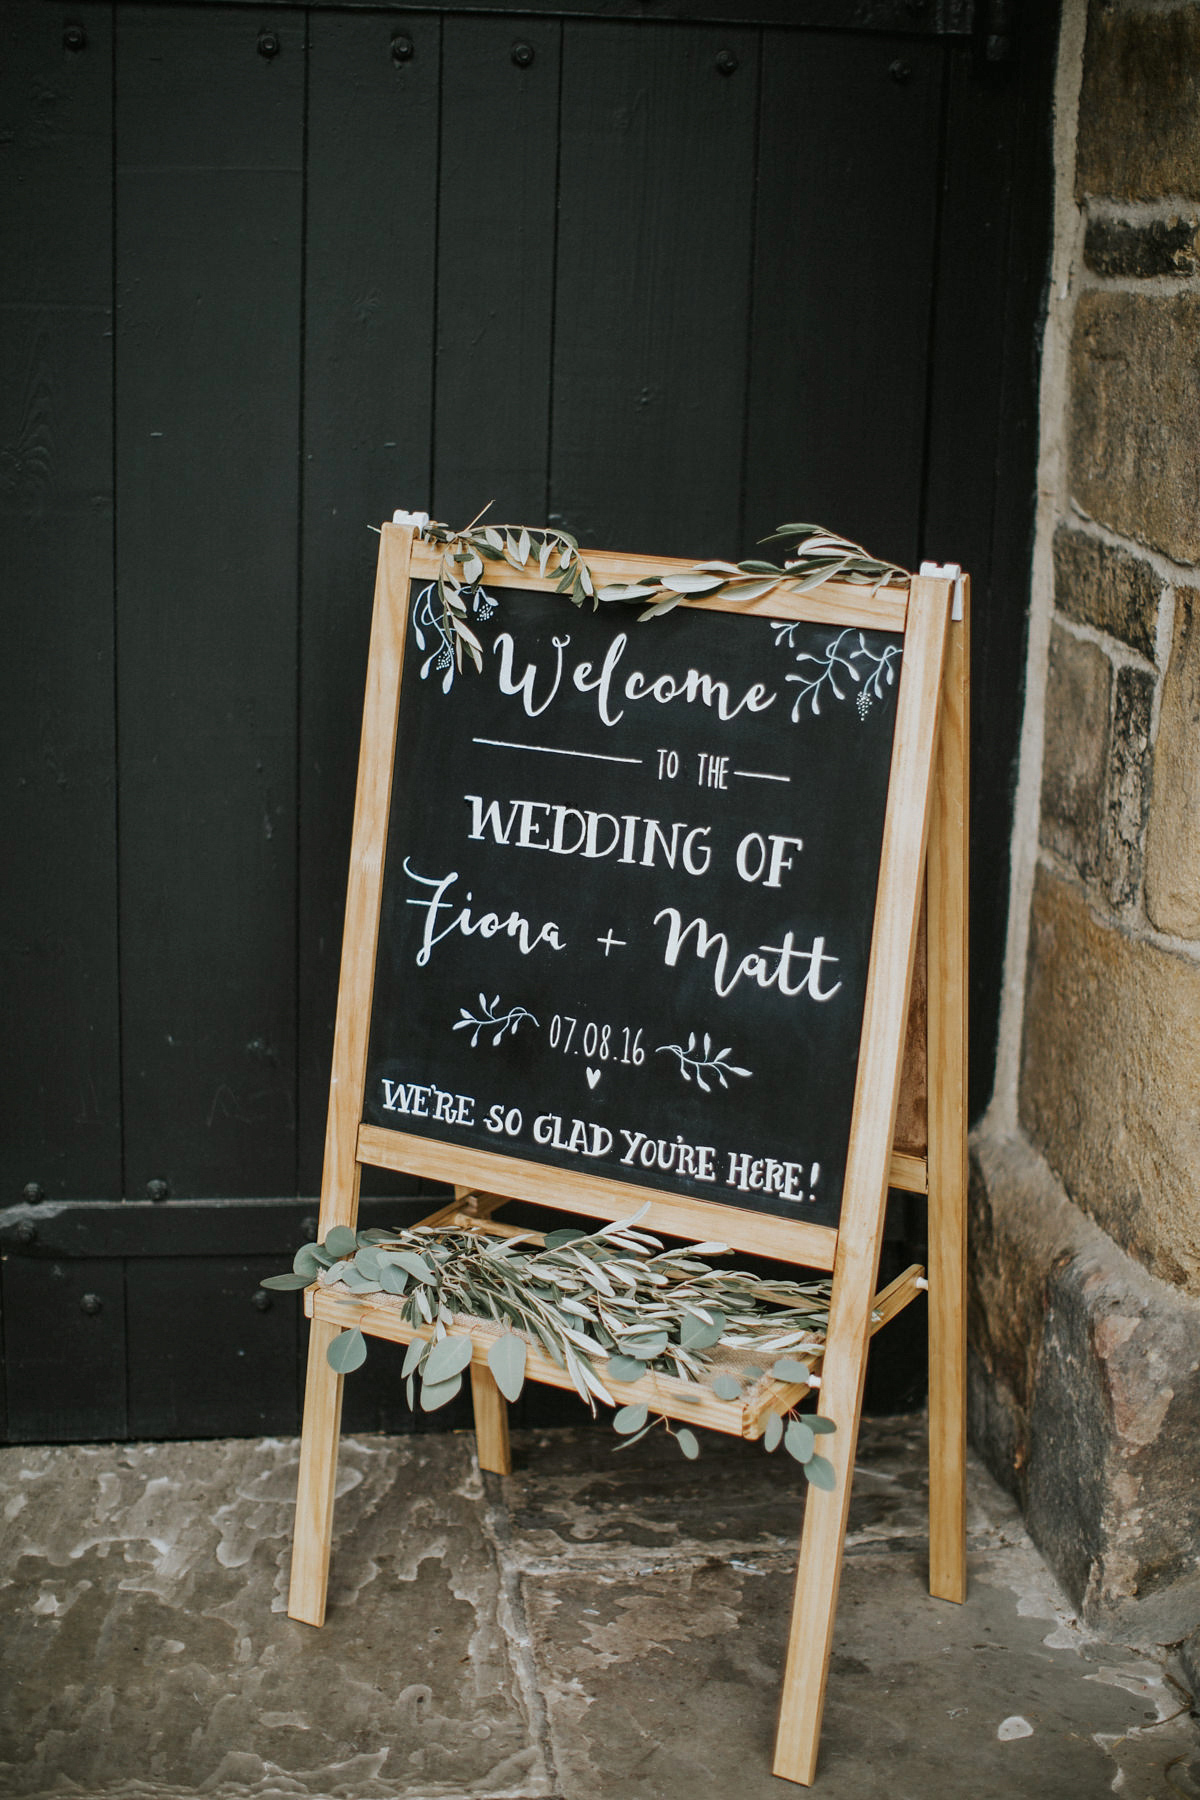 Welcome
TO THE
WEDDING OF
Fiona + Matt
07.08.16
WE'RE SO GLAD YOU'RE HERE!